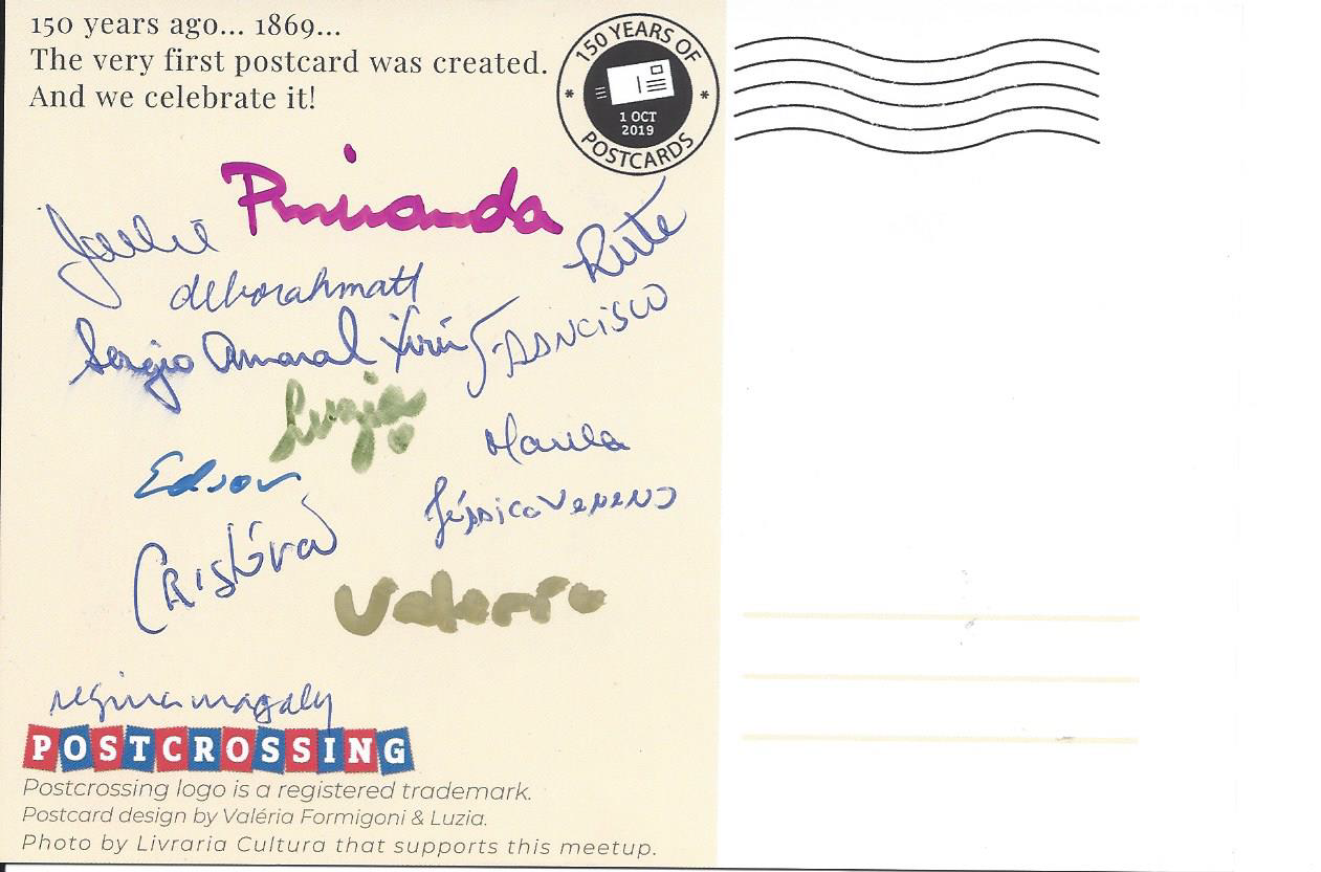 150 years ago... 1869...
The very first postcard was created.
And we celebrate it!
150 YEARS OF
1 OCT
2019
POSTCARDS
Pmiranda
Rute
deborahmatt
Sergio Amaral
Francisco
Luzia
Marila
Edson
Jéssica
Cristóvao
regina magaly
POSTCROSSING
Postcrossing logo is a registered trademark.
Postcard design by Valéria Formigoni & Luzia.
Photo by Livraria Cultura that supports this meetup.